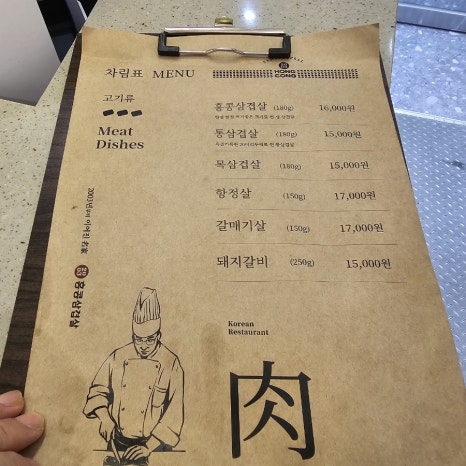 차림표 MENU
HONG
CONG
고기류
Meat
Dishes
홍콩삼겹살 (180g) 16,000원
통삼겹살 (180g) 15,000원
목삼겹살 (180g) 15,000원
항정살 (150g) 17,000원
갈매기살 (150g) 17,000원
돼지갈비 (250g) 15,000원
2003년부터 이어진 老家
홍콩삼겹살
Korean
Restaurant
肉